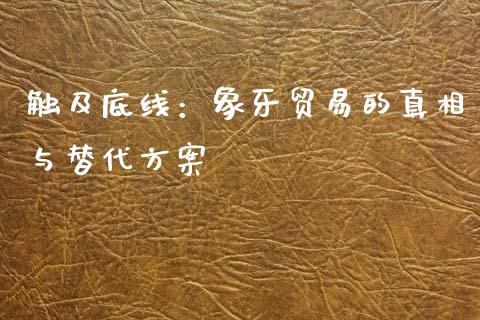 触及底线：象牙贸易的真相
与替代方案